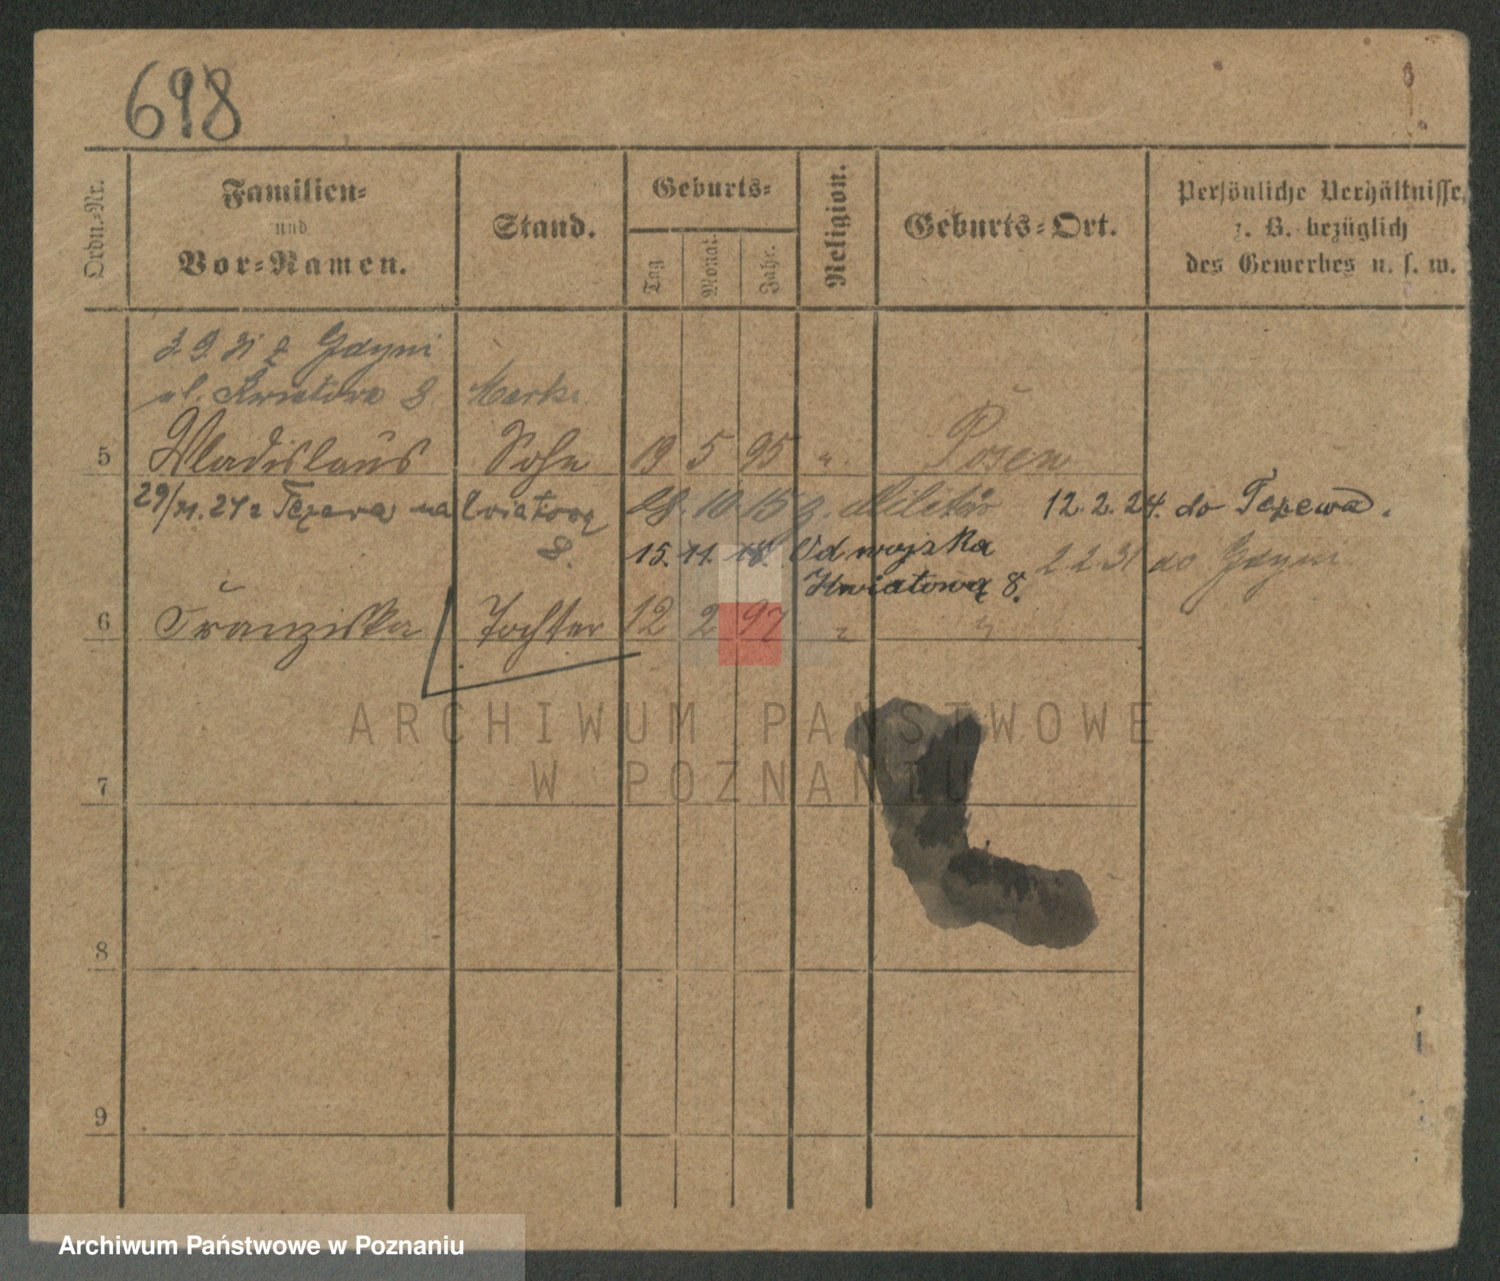 698
Ordn.-Nr.
Familien-
und
Vor-Namen.
Stand.
Geburts-
Tag
Monat.
Jahr.
Religion.
Geburts-Ort.
Persönliche Verhältnisse,
z. B. bezüglich
des Gewerbes u. s. w.
3.9.31 z Gdyni
ul. Kwiatowa 8
5 Wladislaus Sohn 19 5 95 " Posen
29/11.24 z Tczewa na Kwiatową 8.
28.10.15 z. Militär
12.2.24. do Tczewa.
15.11.18. Od wojska
Kwiatową 8.
2 2 31 do Gdyni
6 Franziska Tochter 12 2 97 " "
7
8
9
ARCHIWUM PAŃSTWOWE
W POZNANIU
Archiwum Państwowe w Poznaniu